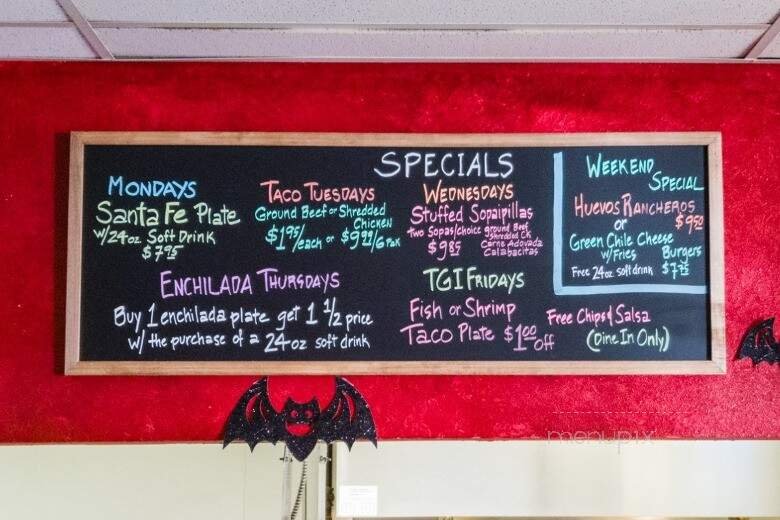 SPECIALS
MONDAYS
Santa Fe Plate
w/24oz Soft Drink
$7.95
TACO TUESDAYS
Ground Beef or Shredded
Chicken
$1.95/each or $9.99/6 Pak
WEDNESDAYS
Stuffed Sopaipillas
two Sopas/choice ground Beef
shredded CK
$9.85 Carne Adovada
Calabacitas
WEEKEND
SPECIAL
HUEVOS RANCHEROS
$9.50
or
Green Chile Cheese
w/Fries Burgers
Free 24oz soft drink $7.95
ENCHILADA THURSDAYS
Buy 1 enchilada plate get 1 1/2 price
w/ the purchase of a 24oz soft drink
TGI FRIDAYS
Fish or Shrimp
Taco Plate $1.00 off
Free Chips & Salsa
(Dine In Only)
menupix